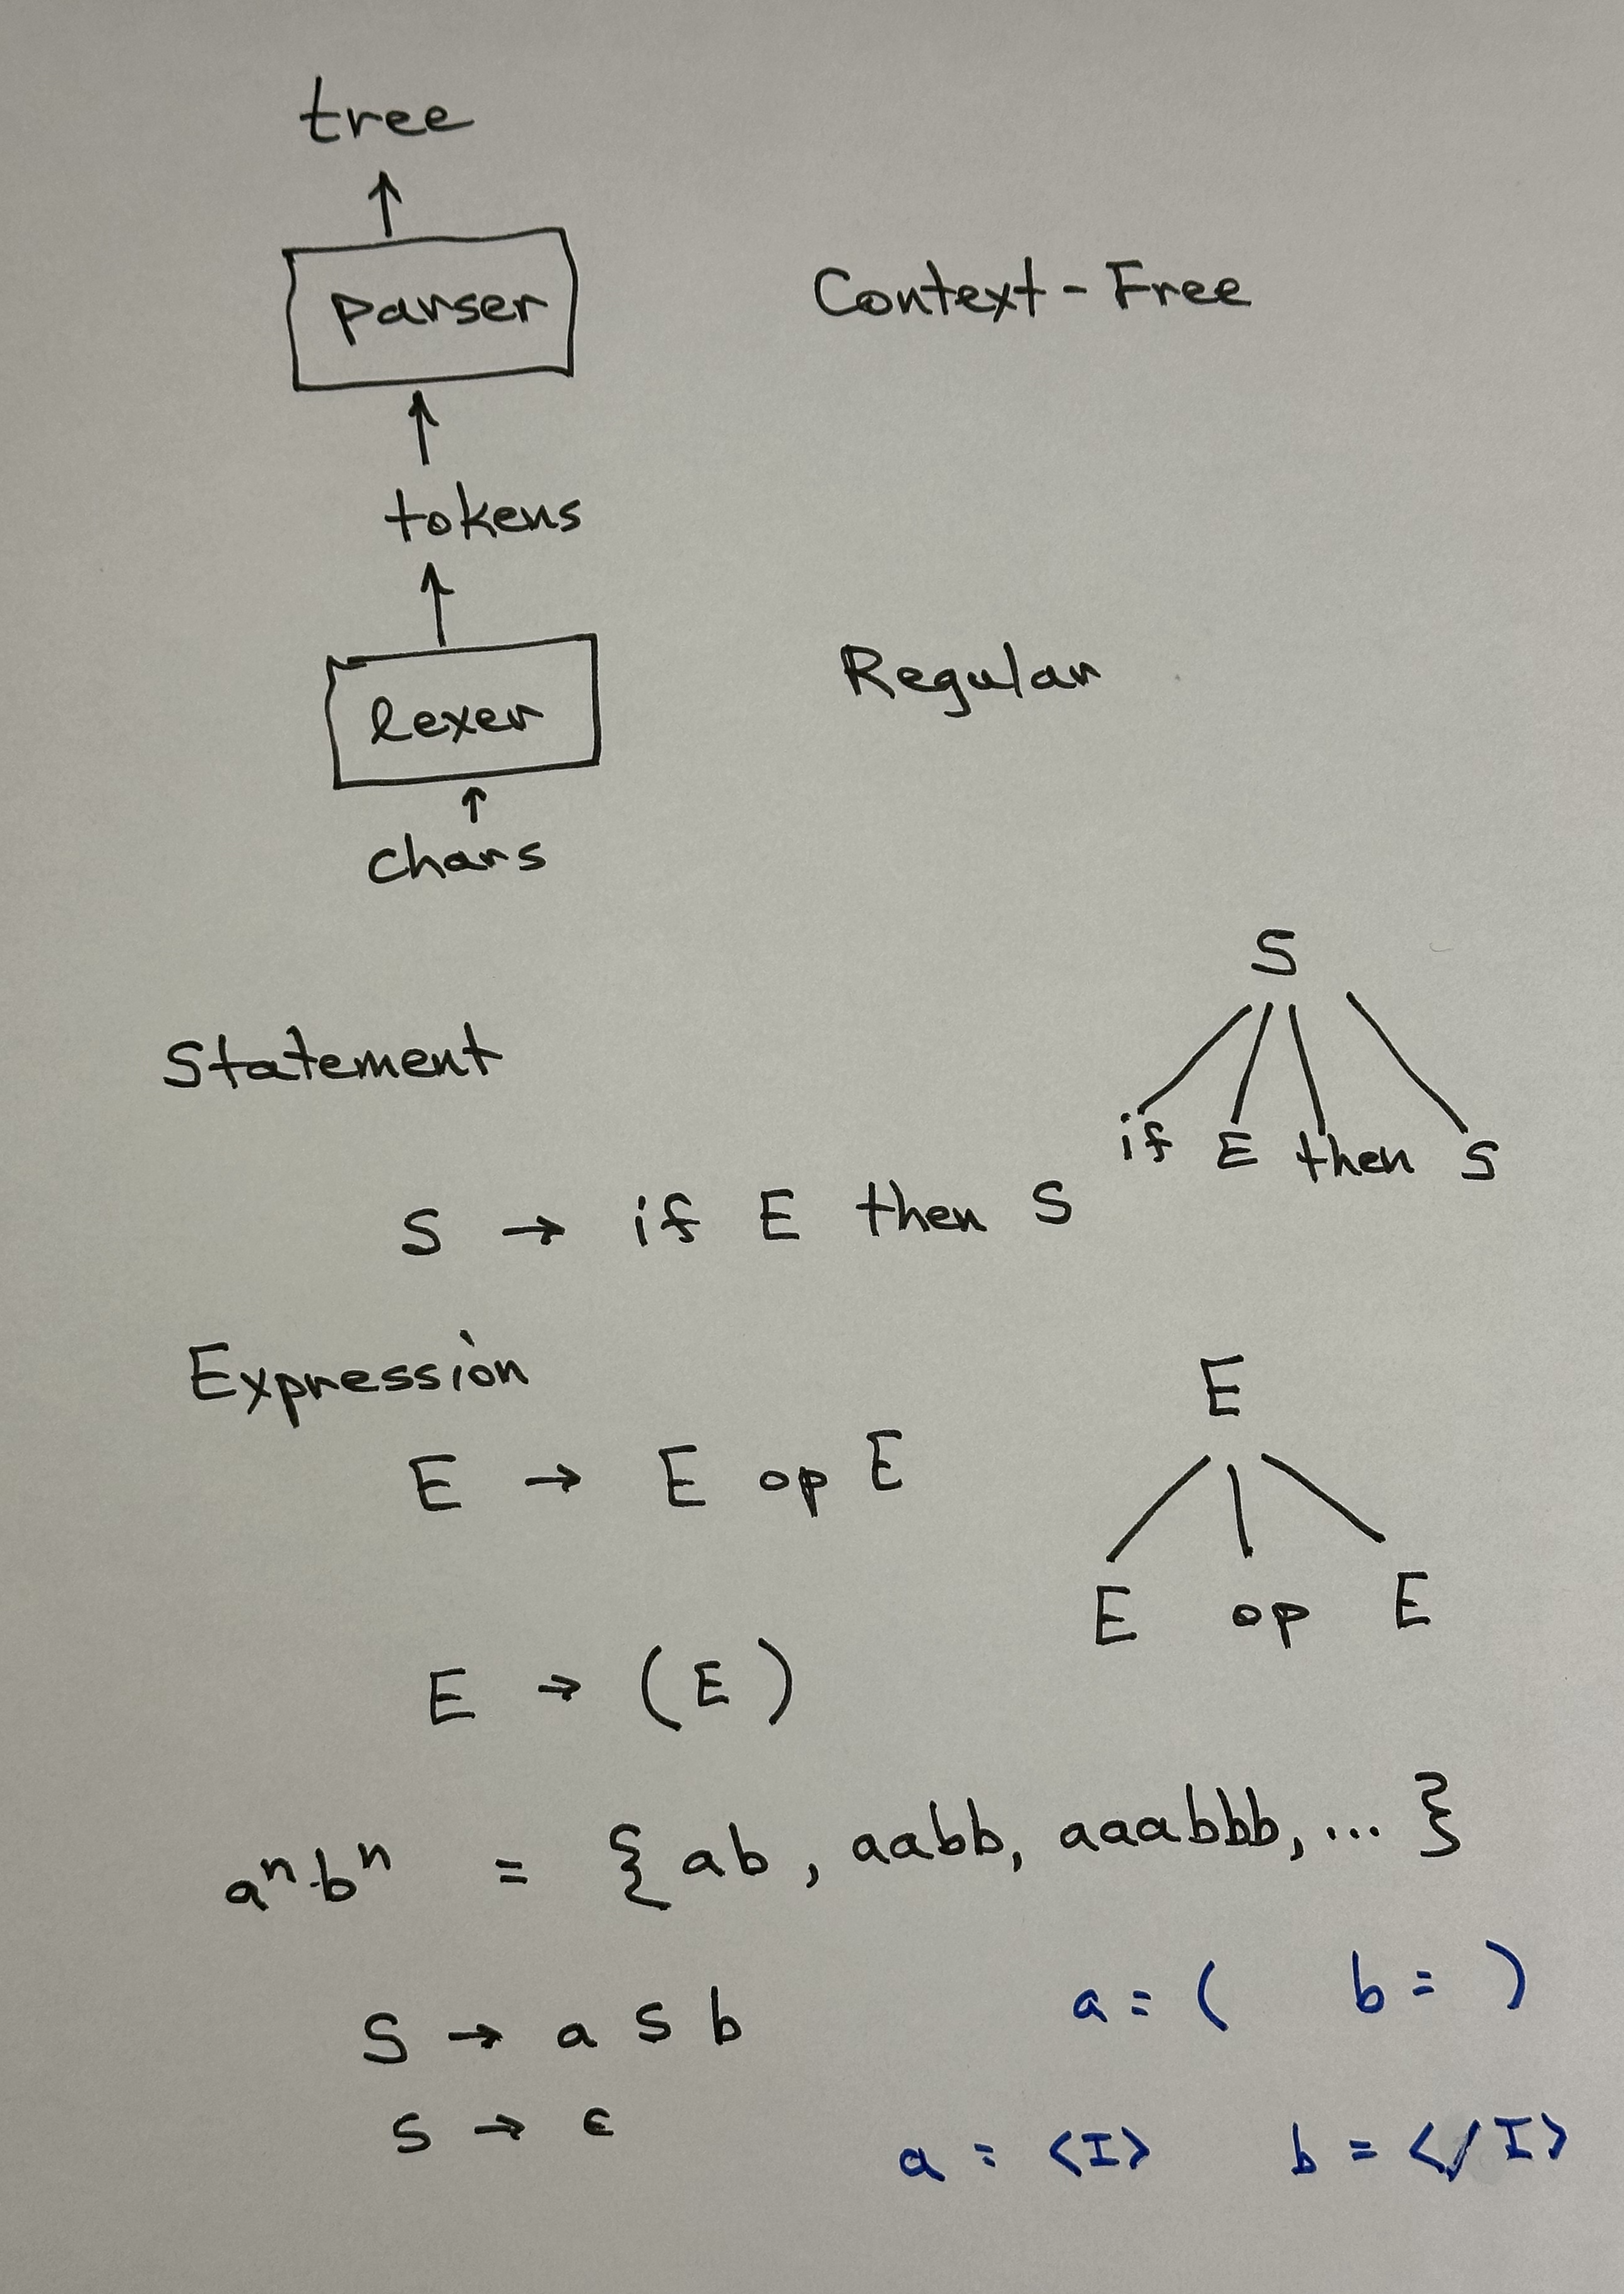 tree
↑
parser Context-Free
↑
tokens
↑
lexer Regular
↑
chars
S
Statement
if E then S
S → if E then S
Expression
E
E → E op E
E op E
E → (E)
aⁿbⁿ = {ab, aabb, aaabbb, ...}
a = ( b = )
S → a S b
S → ε
a = <I> b = </I>